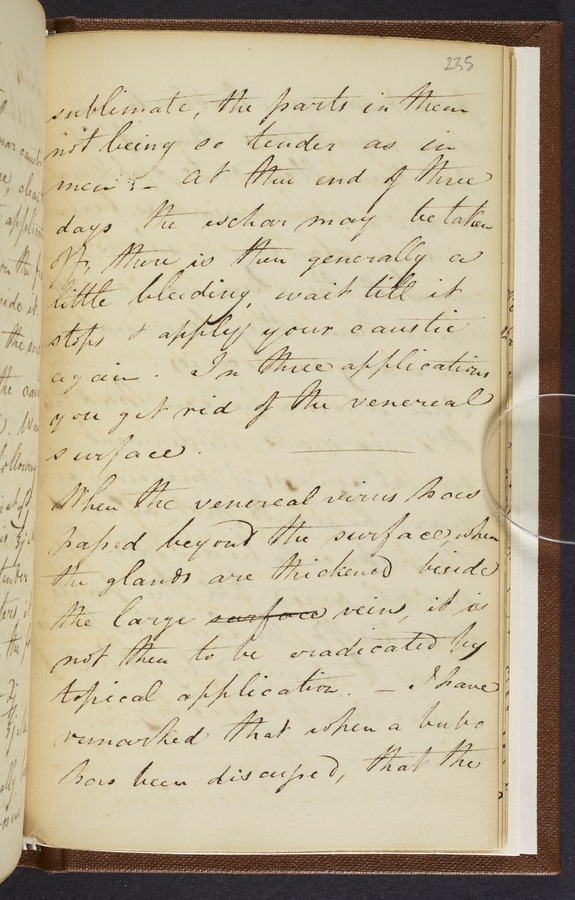 235
sublimate, the parts in them
not being so tender as in
men. - At the end of three
days the eschar may be taken
off, there is then generally a
little bleeding, wait till it
stops & apply your caustic
again. In three applications
you get rid of the venereal
surface.
When the venereal virus has
passed beyond the surface when
the glands are thickened beside
the large surface veins, it is
not then to be eradicated by
topical application. - I have
remarked that when a bubo
has been discussed, that the